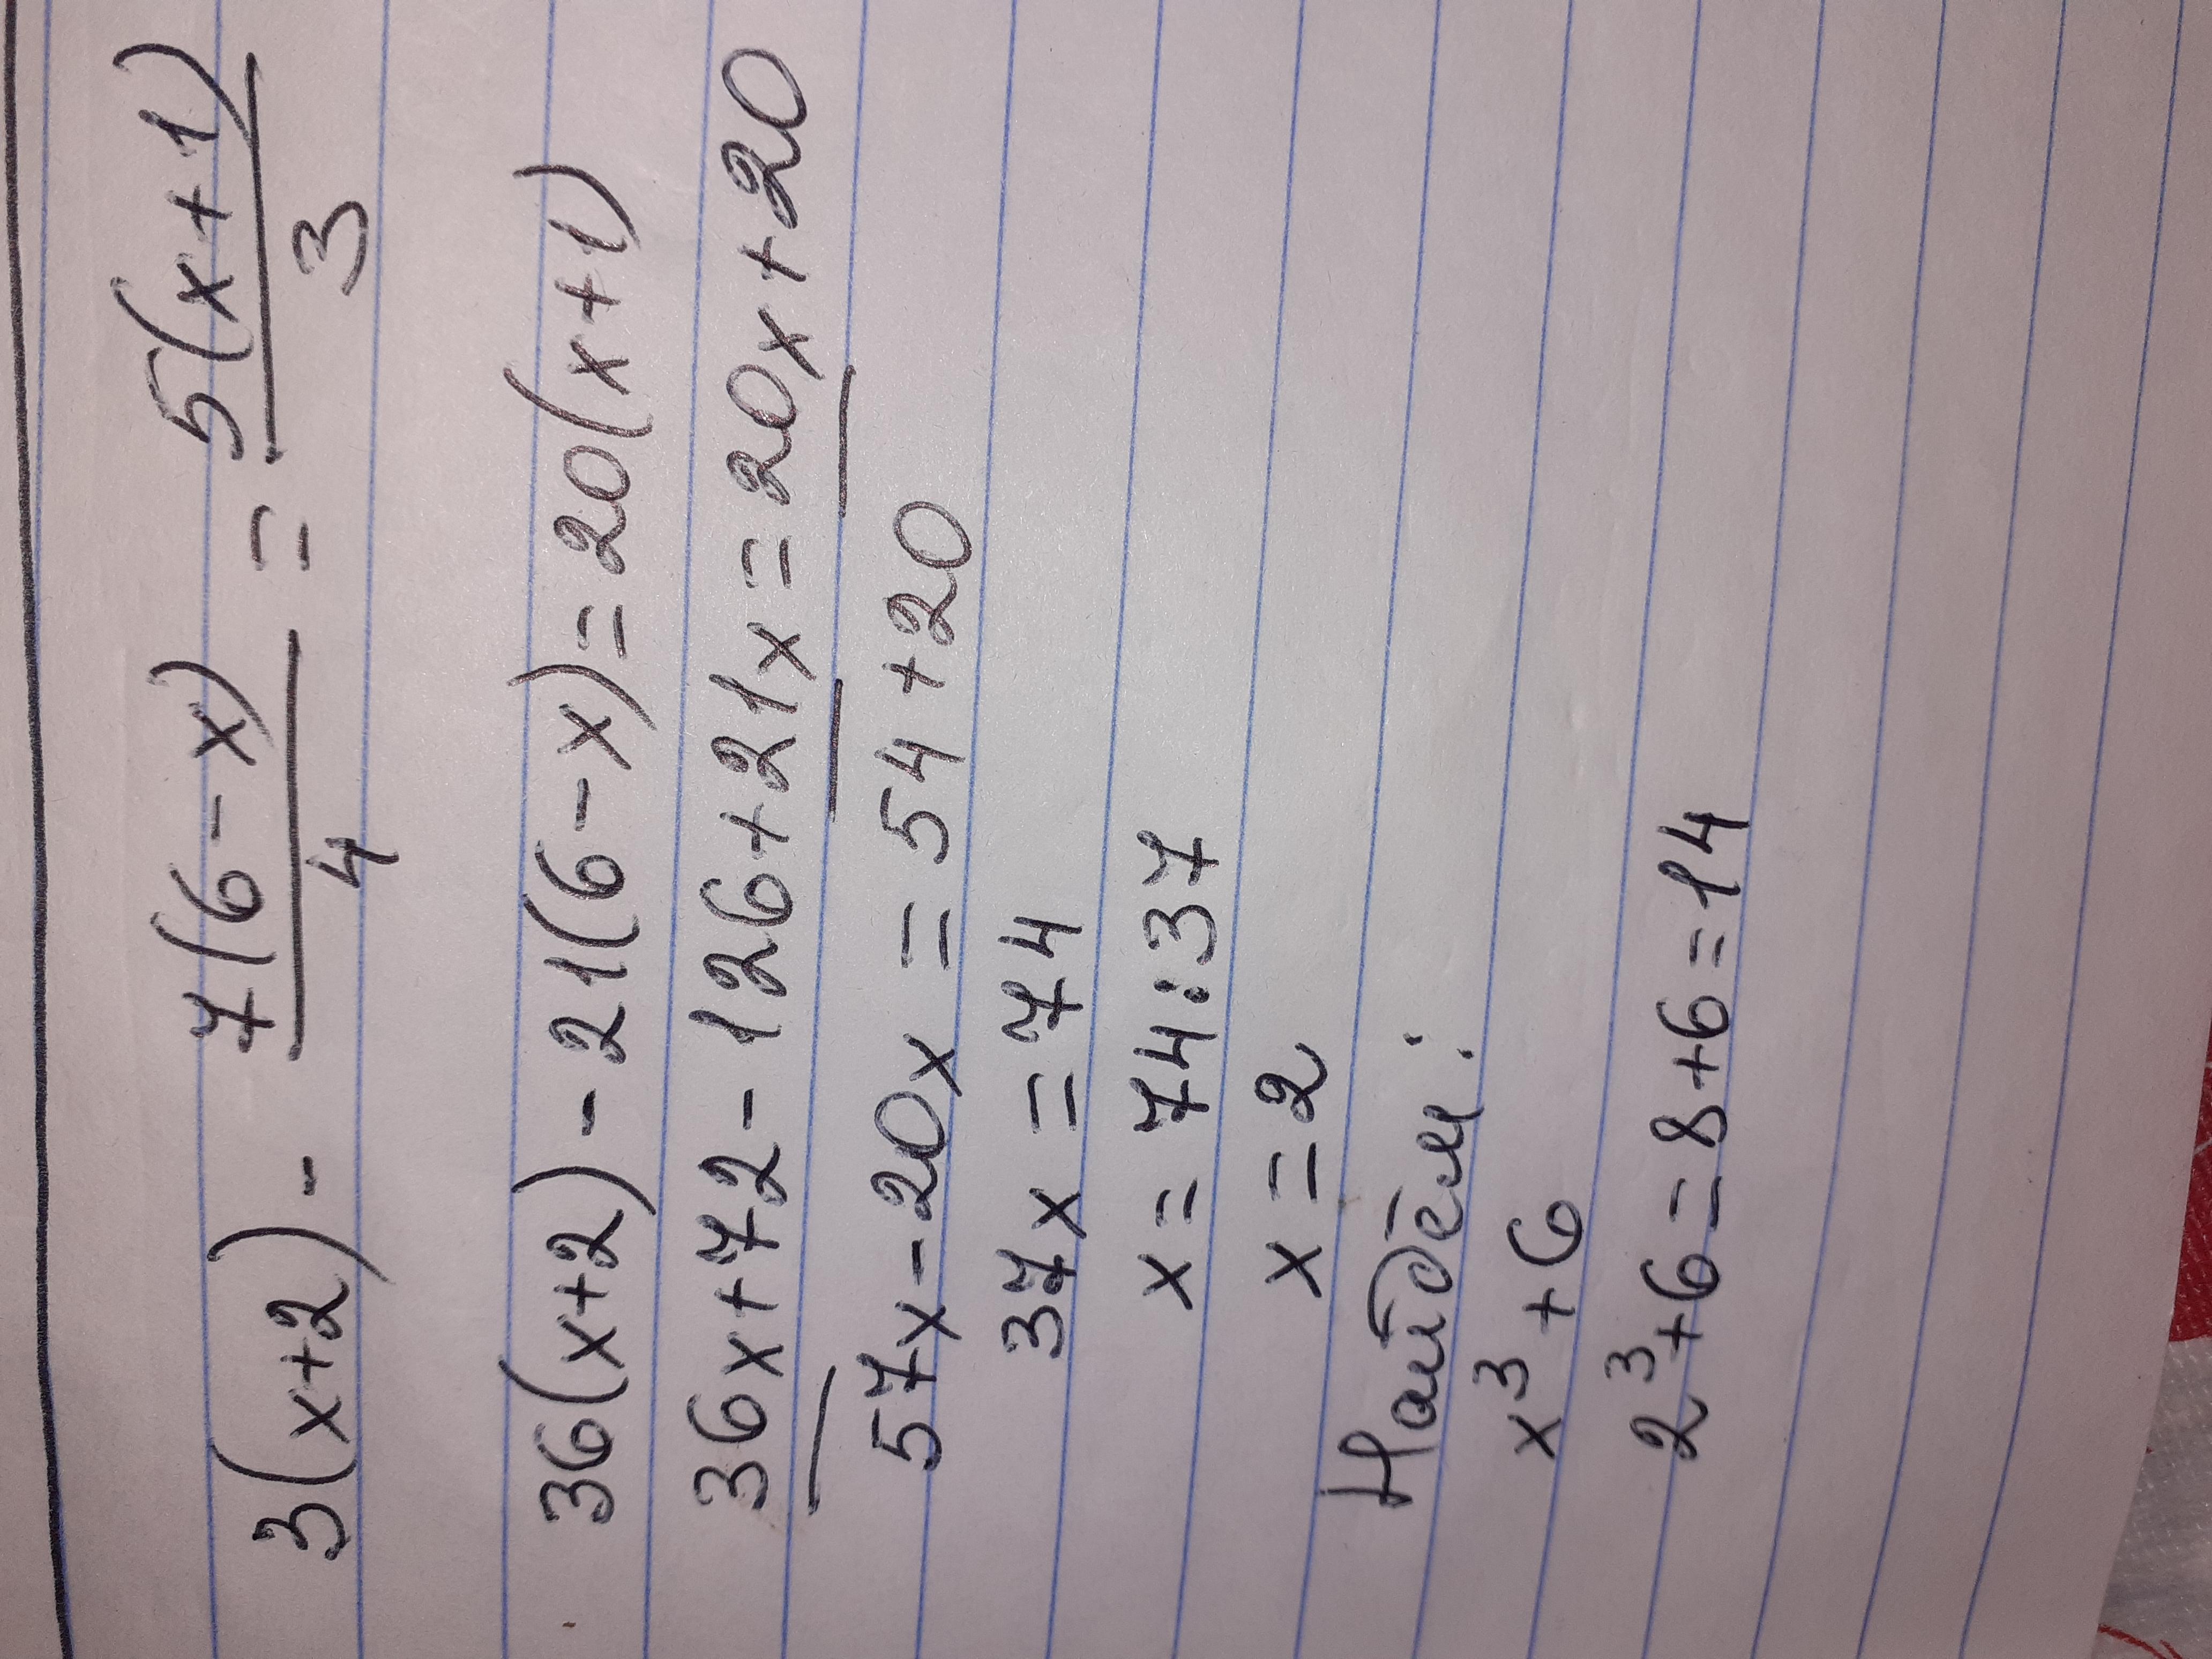 3(x+2) - 7(6-x)/4 = 5(x+1)/3
36(x+2)-21(6-x)=20(x+1)
36x+72-126+21x=20x+20
57x-20x=54+20
37x=74
x=74:37
x=2
Найдём:
x³+6
2³+6=8+6=14